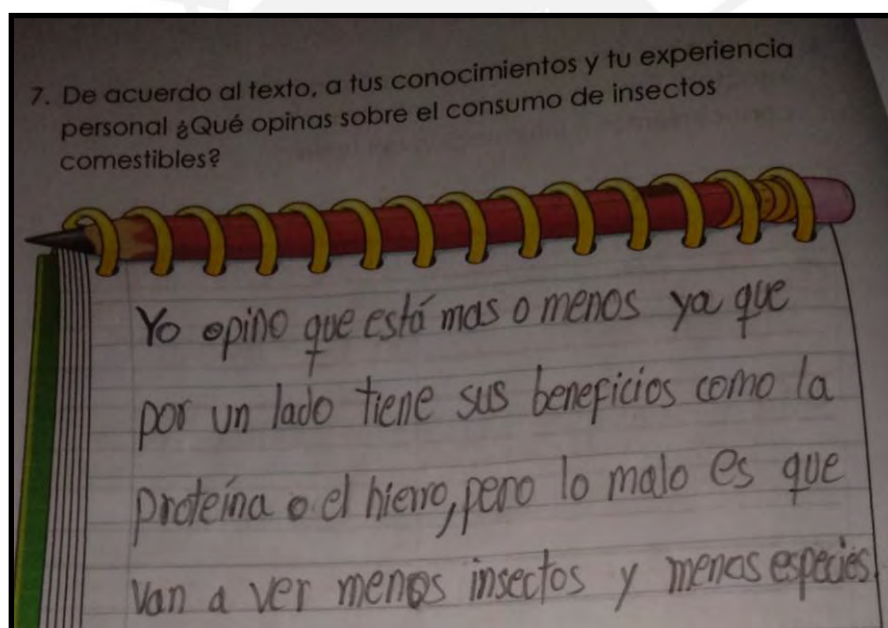 7. De acuerdo al texto, a tus conocimientos y tu experiencia
personal ¿Qué opinas sobre el consumo de insectos
comestibles?
Yo opino que está mas o menos ya que
por un lado tiene sus beneficios como la
proteína o el hierro, pero lo malo es que
van a ver menos insectos y menos especies.